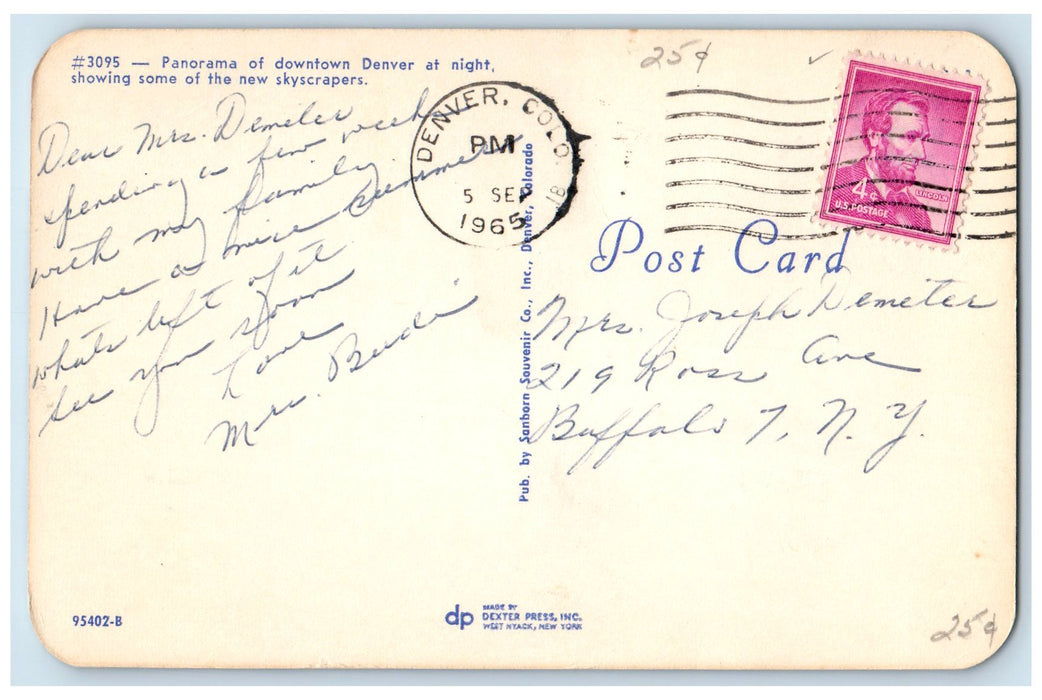 #3095 — Panorama of downtown Denver at night,
showing some of the new skyscrapers.
Dear Mrs. Demeter
spending a few weeks
with my family
Have a nice summer
whats left of it
see you soon
Love
Mrs.
DENVER, COLO.
PM
5 SEP
1965
18
Pub. by Sanborn Souvenir Co., Inc., Denver, Colorado
25¢
4¢
LINCOLN
U.S. POSTAGE
Post Card
Mrs. Joseph Demeter
219 Ross Ave
Buffalo 7, N. Y.
95402-B
dp
MADE BY
DEXTER PRESS, INC.
WEST NYACK, NEW YORK
25¢